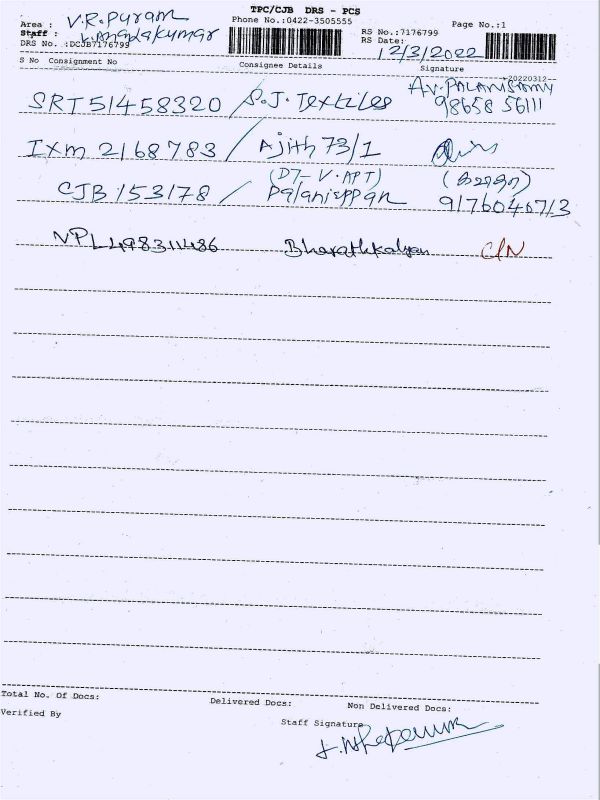 TPC/CJB DRS - PCS
Area : V.R. Puram
Phone No.:0422-3505555
Page No.:1
Staff :
RS No.:7176799
DRS No. :DCJB7176799
RS Date: 12/3/2022
S No Consignment No
Consignee Details
Signature
--20220312--
SRT51458320 / S.J. Textiles
A.V. PALANISAMY
98658 56111
IXM 2168783 / Ajith 73/1
(D7-V.APT)
CJB 153178 / Palanisppan
9176040713
NPL498311486 Bharathkalyan C/N
Total No. Of Docs:
Delivered Docs:
Non Delivered Docs:
Verified By
Staff Signature